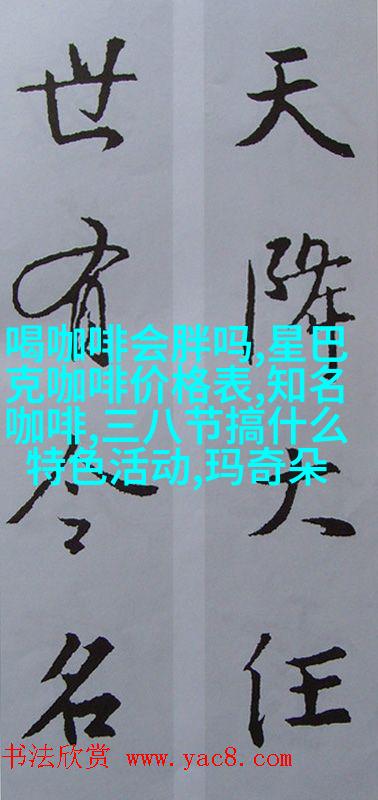 天降大任
世有令名
喝咖啡会胖吗,星巴
克咖啡价格表,知名
咖啡,三八节搞什么
特色活动,玛奇朵
书法欣赏 www.yac8.com